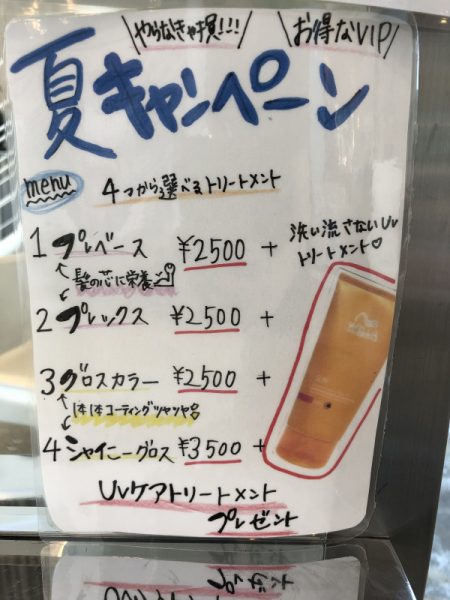 やらなきゃ損!!!
お得なVIP
夏キャンペーン
menu
4つから選べるトリートメント
1 プレベース ¥2500 +
髪の芯に栄養
2 プレックス ¥2500 +
3 グロスカラー ¥2500 +
1本1本コーティングツヤツヤ
4 シャイニーグロス ¥3500 +
洗い流さないUv
トリートメント♡
Uvケアトリートメント
プレゼント